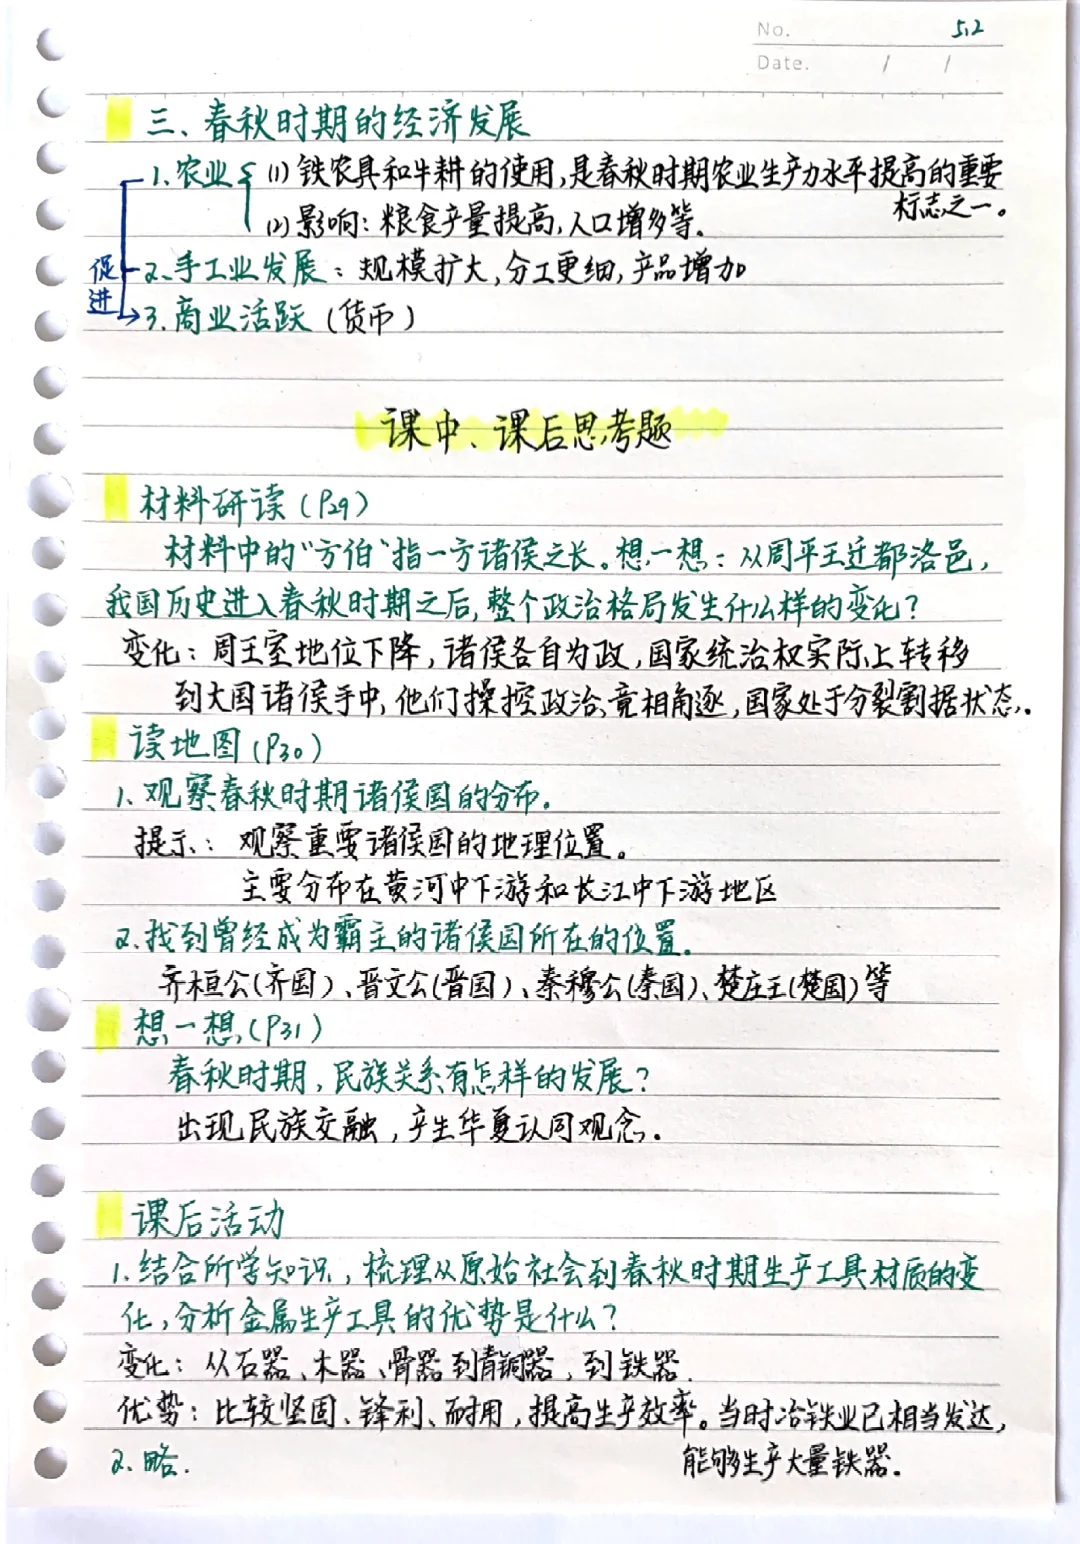 No. 5.2
Date. / /
三、春秋时期的经济发展
1.农业{(1)铁农具和牛耕的使用,是春秋时期农业生产力水平提高的重要
标志之一。
(2)影响:粮食产量提高,人口增多等.
促进
2.手工业发展:规模扩大,分工更细,产品增加
3.商业活跃(货币)
课中、课后思考题
材料研读(P29)
材料中的“方伯”指一方诸侯之长。想一想:从周平王迁都洛邑,
我国历史进入春秋时期之后,整个政治格局发生什么样的变化?
变化:周王室地位下降,诸侯各自为政,国家统治权实际上转移
到大国诸侯手中,他们操控政治、竞相角逐,国家处于分裂割据状态.
读地图(P30)
1.观察春秋时期诸侯国的分布.
提示:观察重要诸侯国的地理位置。
主要分布在黄河中下游和长江中下游地区
2.找到曾经成为霸主的诸侯国所在的位置.
齐桓公(齐国)、晋文公(晋国)、秦穆公(秦国)、楚庄王(楚国)等
想一想(P31)
春秋时期,民族关系有怎样的发展?
出现民族交融,产生华夏认同观念.
课后活动
1.结合所学知识,梳理从原始社会到春秋时期生产工具材质的变
化,分析金属生产工具的优势是什么?
变化:从石器、木器、骨器到青铜器,到铁器.
优势:比较坚固、锋利、耐用,提高生产效率。当时冶铁业已相当发达,
能够生产大量铁器.
2.略.